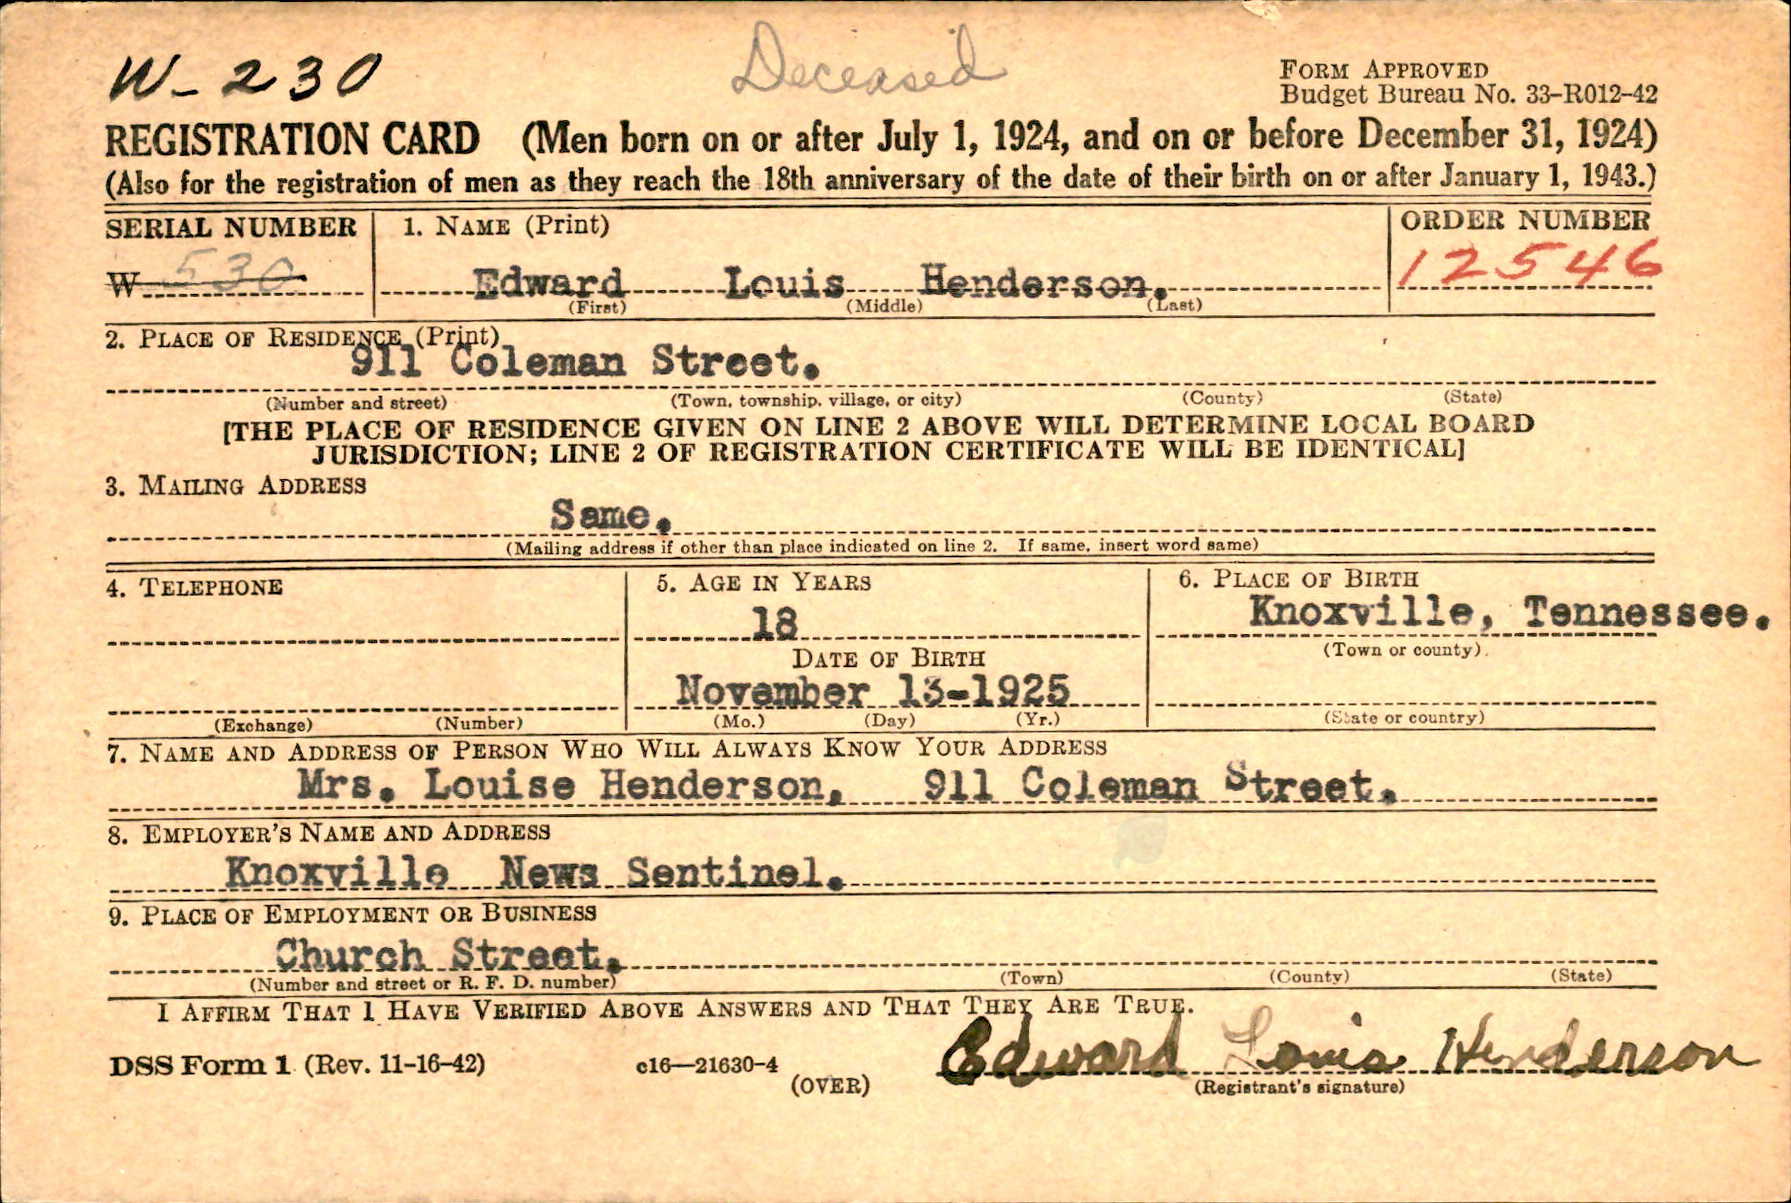 W-230
Deceased
FORM APPROVED
Budget Bureau No. 33-R012-42
REGISTRATION CARD (Men born on or after July 1, 1924, and on or before December 31, 1924)
(Also for the registration of men as they reach the 18th anniversary of the date of their birth on or after January 1, 1943.)
SERIAL NUMBER
1. NAME (Print)
ORDER NUMBER
W 530
Edward Louis Henderson.
12546
(First) (Middle) (Last)
2. PLACE OF RESIDENCE (Print)
911 Coleman Street.
(Number and street) (Town, township, village, or city) (County) (State)
[THE PLACE OF RESIDENCE GIVEN ON LINE 2 ABOVE WILL DETERMINE LOCAL BOARD
JURISDICTION; LINE 2 OF REGISTRATION CERTIFICATE WILL BE IDENTICAL]
3. MAILING ADDRESS
Same.
(Mailing address if other than place indicated on line 2. If same, insert word same)
4. TELEPHONE
5. AGE IN YEARS
6. PLACE OF BIRTH
18
Knoxville, Tennessee.
DATE OF BIRTH
(Town or county)
November 13-1925
(Exchange) (Number)
(Mo.) (Day) (Yr.)
(State or country)
7. NAME AND ADDRESS OF PERSON WHO WILL ALWAYS KNOW YOUR ADDRESS
Mrs. Louise Henderson, 911 Coleman Street.
8. EMPLOYER'S NAME AND ADDRESS
Knoxville News Sentinel.
9. PLACE OF EMPLOYMENT OR BUSINESS
Church Street.
(Number and street or R. F. D. number) (Town) (County) (State)
I AFFIRM THAT I HAVE VERIFIED ABOVE ANSWERS AND THAT THEY ARE TRUE.
Edward Louis Henderson
DSS Form 1 (Rev. 11-16-42) c16—21630-4
(OVER)
(Registrant's signature)